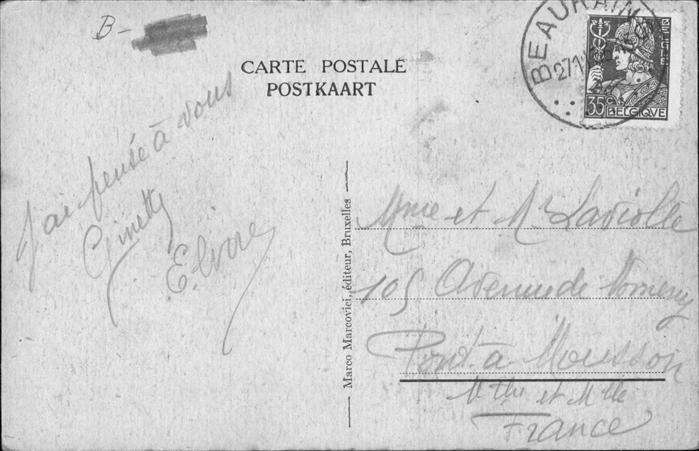 B-
CARTE POSTALE
POSTKAART
BEAURAING
35 c
BELGIQUE
BELGIE
J'ai pensé à vous
Ginette
Elvire
Marco Marcovici, éditeur, Bruxelles
Mme et Mr Laviolle
105 Avenue de Nomeny
Pont-à Mousson
Mthe et Mlle
France